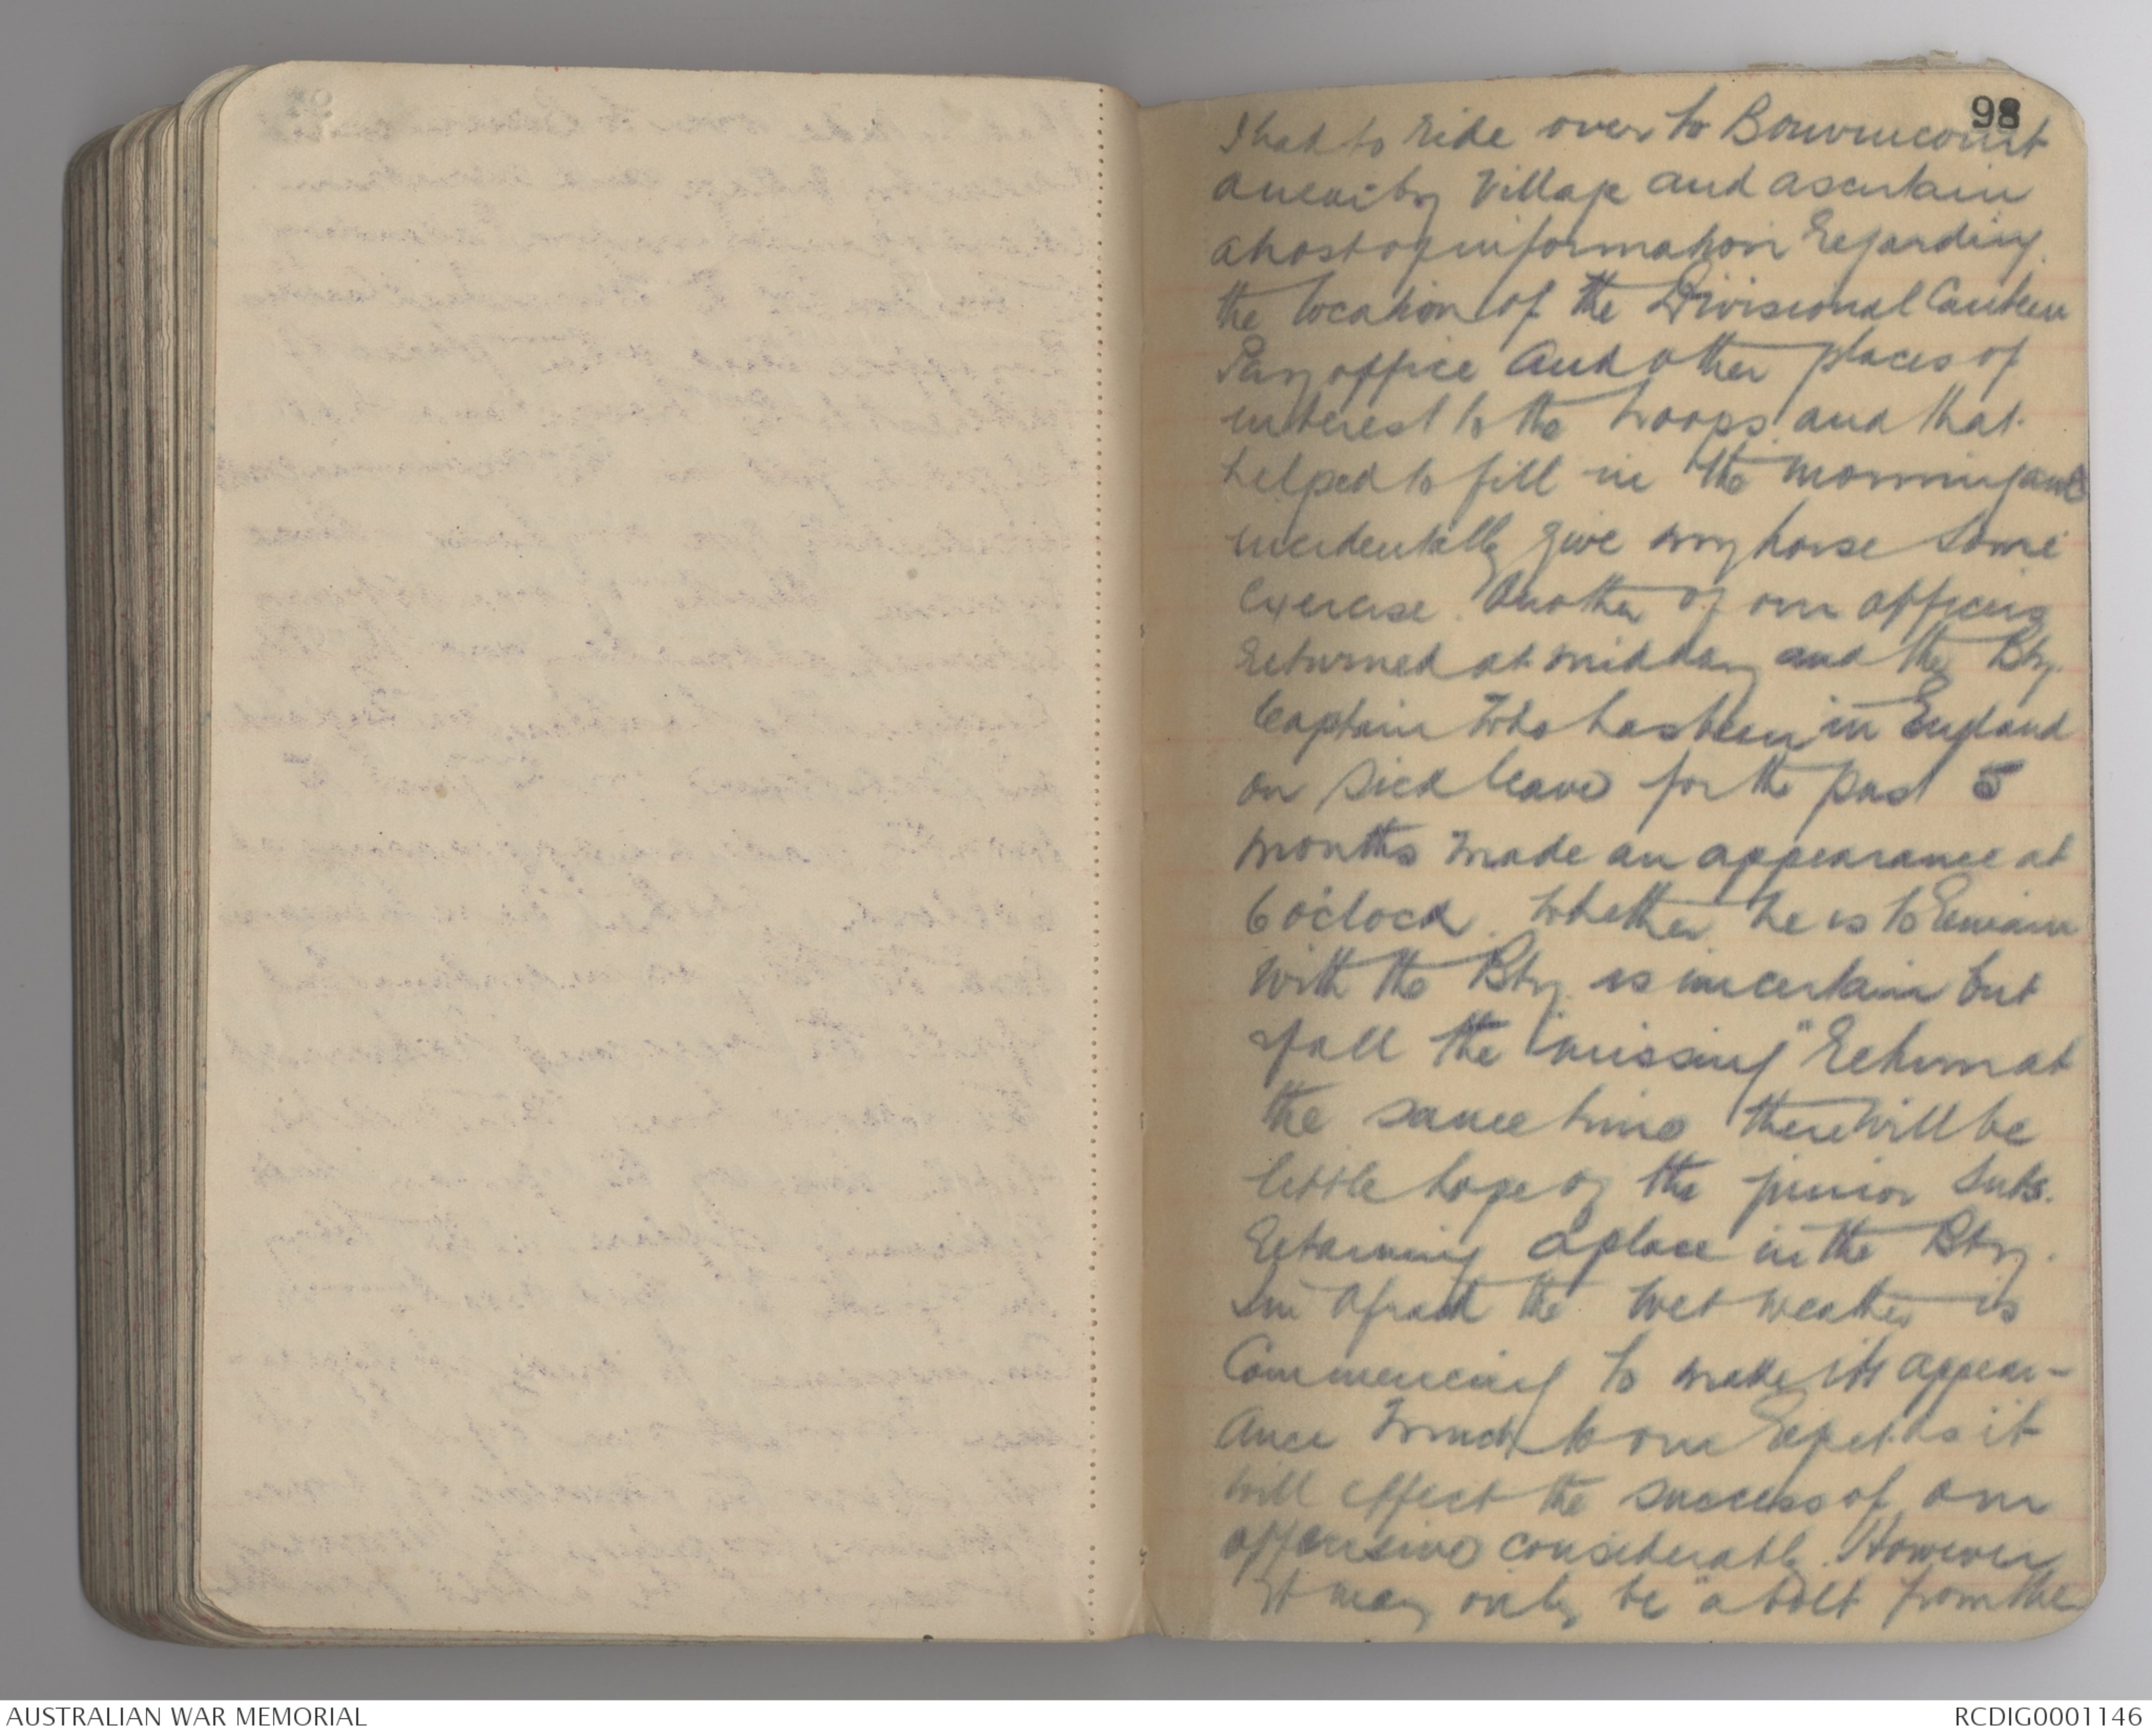 98
I had to ride over to Bouvincourt
a nearby village and ascertain
a host of information regarding
the location of the Divisional Canteen
Pay office and other places of
interest to the troops and that
helped to fill in the morning and
incidentally give my horse some
exercise. Another of our officers
returned at midday and the Bty.
Captain who has been in England
on sick leave for the past 5
months made an appearance at
6 o'clock. Whether he is to remain
with the Bty. is uncertain but
if all the "missing" return at
the same time there will be
little hope of the junior subs.
retaining a place in the Bty.
I'm afraid the wet weather is
commencing to make its appear-
ance much to our regret as it
will effect the success of our
offensive considerably. However
it may only be "a bolt from the
AUSTRALIAN WAR MEMORIAL
RCDIG0001146